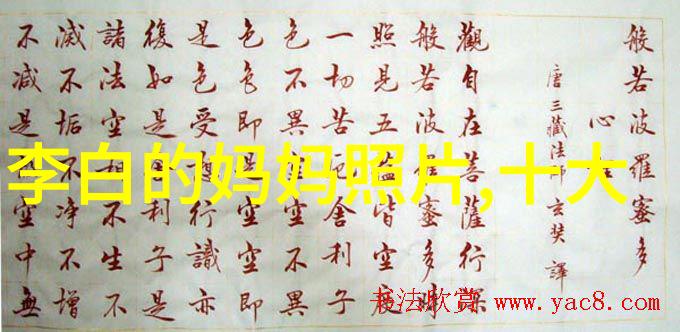 般若波羅蜜多
心經
唐三藏法師玄奘譯
觀自在菩薩行深
般若波羅蜜多時
照見五蘊皆空度
一切苦厄舍利子
色不異空空不異
色色即是空空即
是色受想行識亦
復如是舍利子是
諸法空相不生不
滅不垢不淨不增
不減是故空中無
李白的妈妈照片,十大
书法欣赏 www.yac8.com